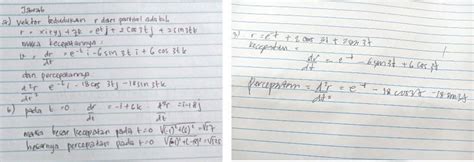 Jawab
a) Vektor kedudukan r dari partikel adalah
r = xi + yj + zk = e^-t i + 2 cos 3t j + 2 sin 3t k
maka kecepatannya :
v = dr/dt = e^-t i - 6 sin 3t i + 6 cos 3t k
dan percepatannya
d²r/dt² e^-t i - 18 cos 3t j - 18 sin 3t k
b) pada t=0 dr/dt = -i + 6k d²r/dt² = i - 18j
maka besar kecepatan pada t=0 √(-1)²+(6)² = √37
besarnya percepatan pada t=0
r = e^-t + 2 cos 3t + 2 sin 3t
kecepatan =
dr/dt = -e^-t - 6 sin 3t + 6 cos 3t
percepatan = d²r/dt² = e^-t - 18 cos 3t - 18 sin 3t